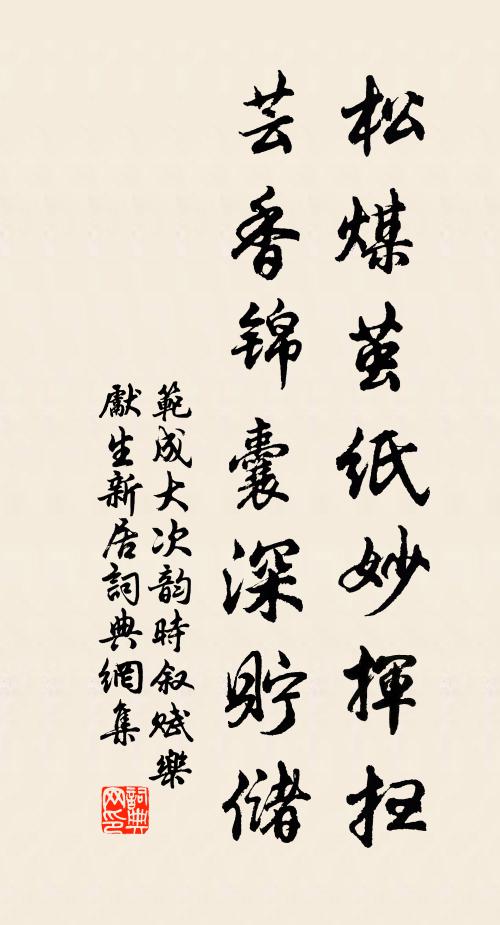 松煤茧纸妙揮扫
芸香锦囊深贮储
範成大次韵時叙赋樂
獻生新居詞典網集
詞典网印